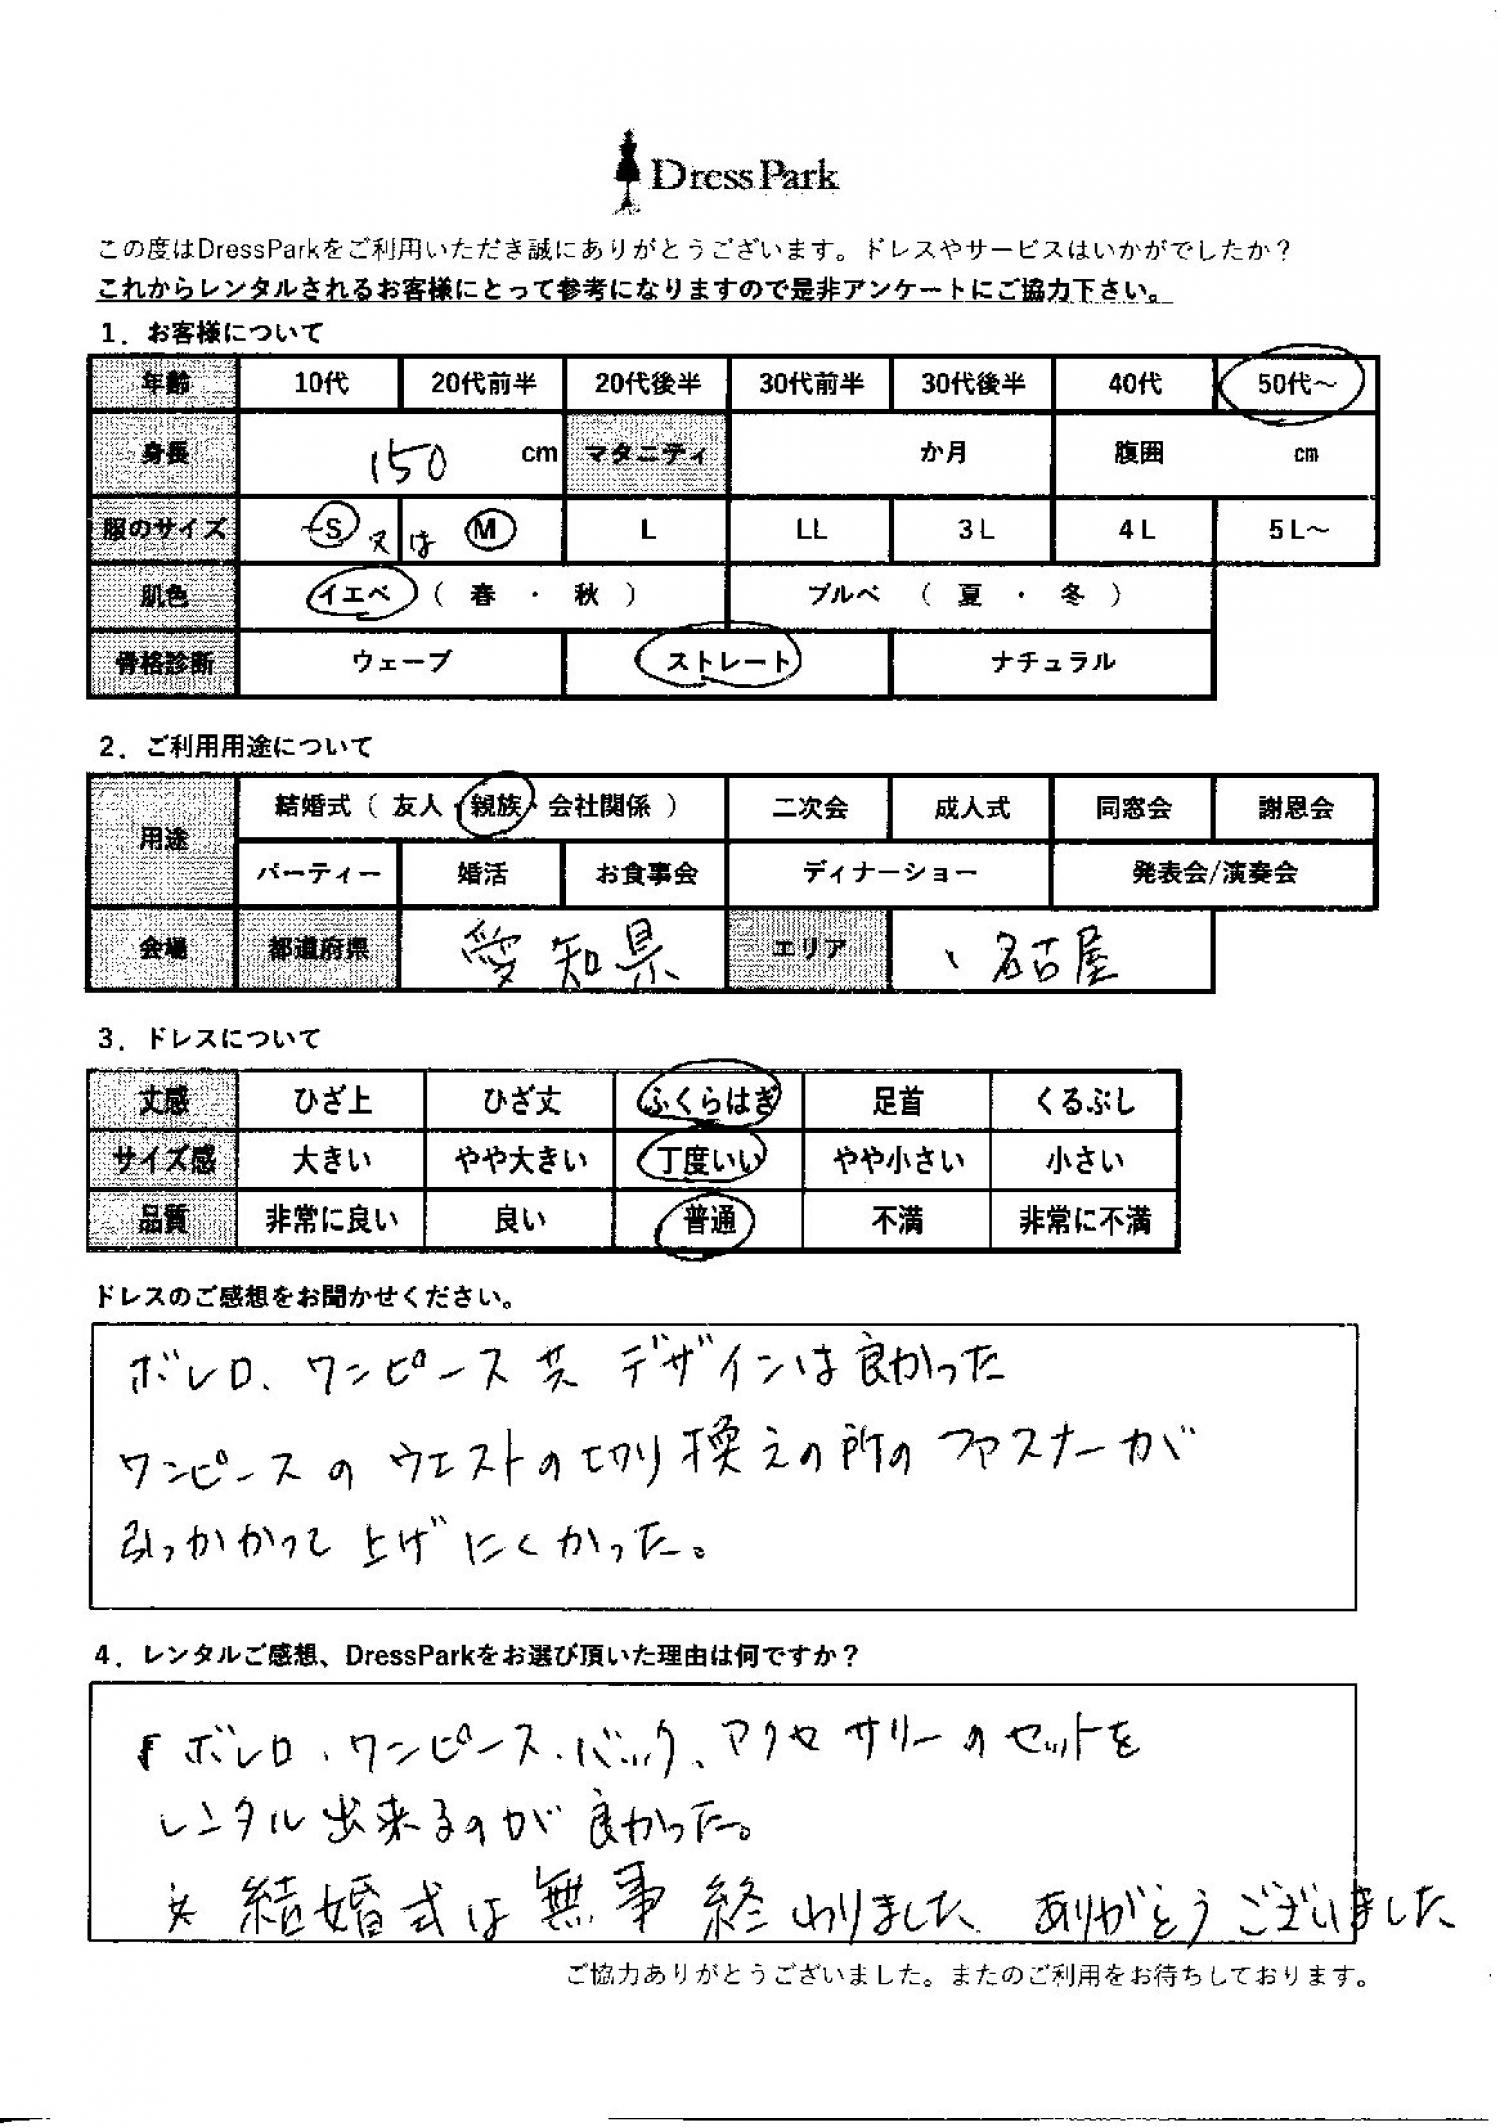 DressPark
この度はDressParkをご利用いただき誠にありがとうございます。ドレスやサービスはいかがでしたか？
これからレンタルされるお客様にとって参考になりますので是非アンケートにご協力下さい。
1．お客様について
年齢 10代 20代前半 20代後半 30代前半 30代後半 40代 50代～
身長 150 cm マタニティ か月 腹囲 cm
服のサイズ S 又は M L LL 3L 4L 5L～
肌色 イエベ （ 春 ・ 秋 ） ブルベ （ 夏 ・ 冬 ）
骨格診断 ウェーブ ストレート ナチュラル
2．ご利用用途について
用途 結婚式（ 友人・親族・会社関係 ） 二次会 成人式 同窓会 謝恩会
パーティー 婚活 お食事会 ディナーショー 発表会/演奏会
会場 都道府県 愛知県 エリア 名古屋
3．ドレスについて
丈感 ひざ上 ひざ丈 ふくらはぎ 足首 くるぶし
サイズ感 大きい やや大きい 丁度いい やや小さい 小さい
品質 非常に良い 良い 普通 不満 非常に不満
ドレスのご感想をお聞かせください。
ボレロ、ワンピース共 デザインは良かった
ワンピースの ウエストの切り換えの所の ファスナーが
引っかかって 上げにくかった。
4．レンタルご感想、DressParkをお選び頂いた理由は何ですか？
ボレロ、ワンピース、バック、アクセサリーのセットを
レンタル出来るのが 良かった。
※ 結婚式は無事 終わりました ありがとうございました
ご協力ありがとうございました。またのご利用をお待ちしております。